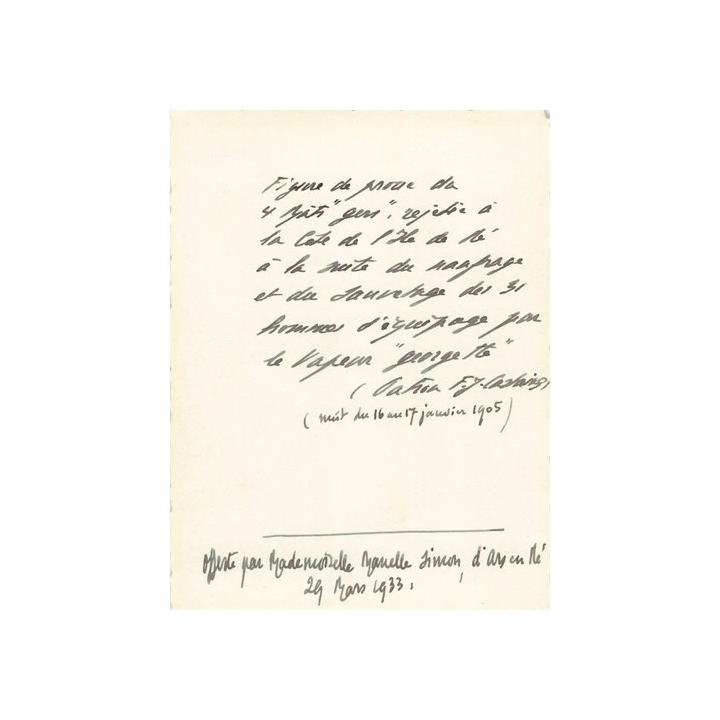 Figure de proue du
4 Mâts "gers", rejetée à
la Côte de l'Ile de Ré
à la suite du naufrage
et du Sauvetage des 31
hommes d'équipage par
le Vapeur "georgette"
(Patron F.J.
(nuit du 16 au 17 janvier 1905)
offerte par Mademoiselle Manelle Simon, d'Ars en Ré
29 Mars 1933.